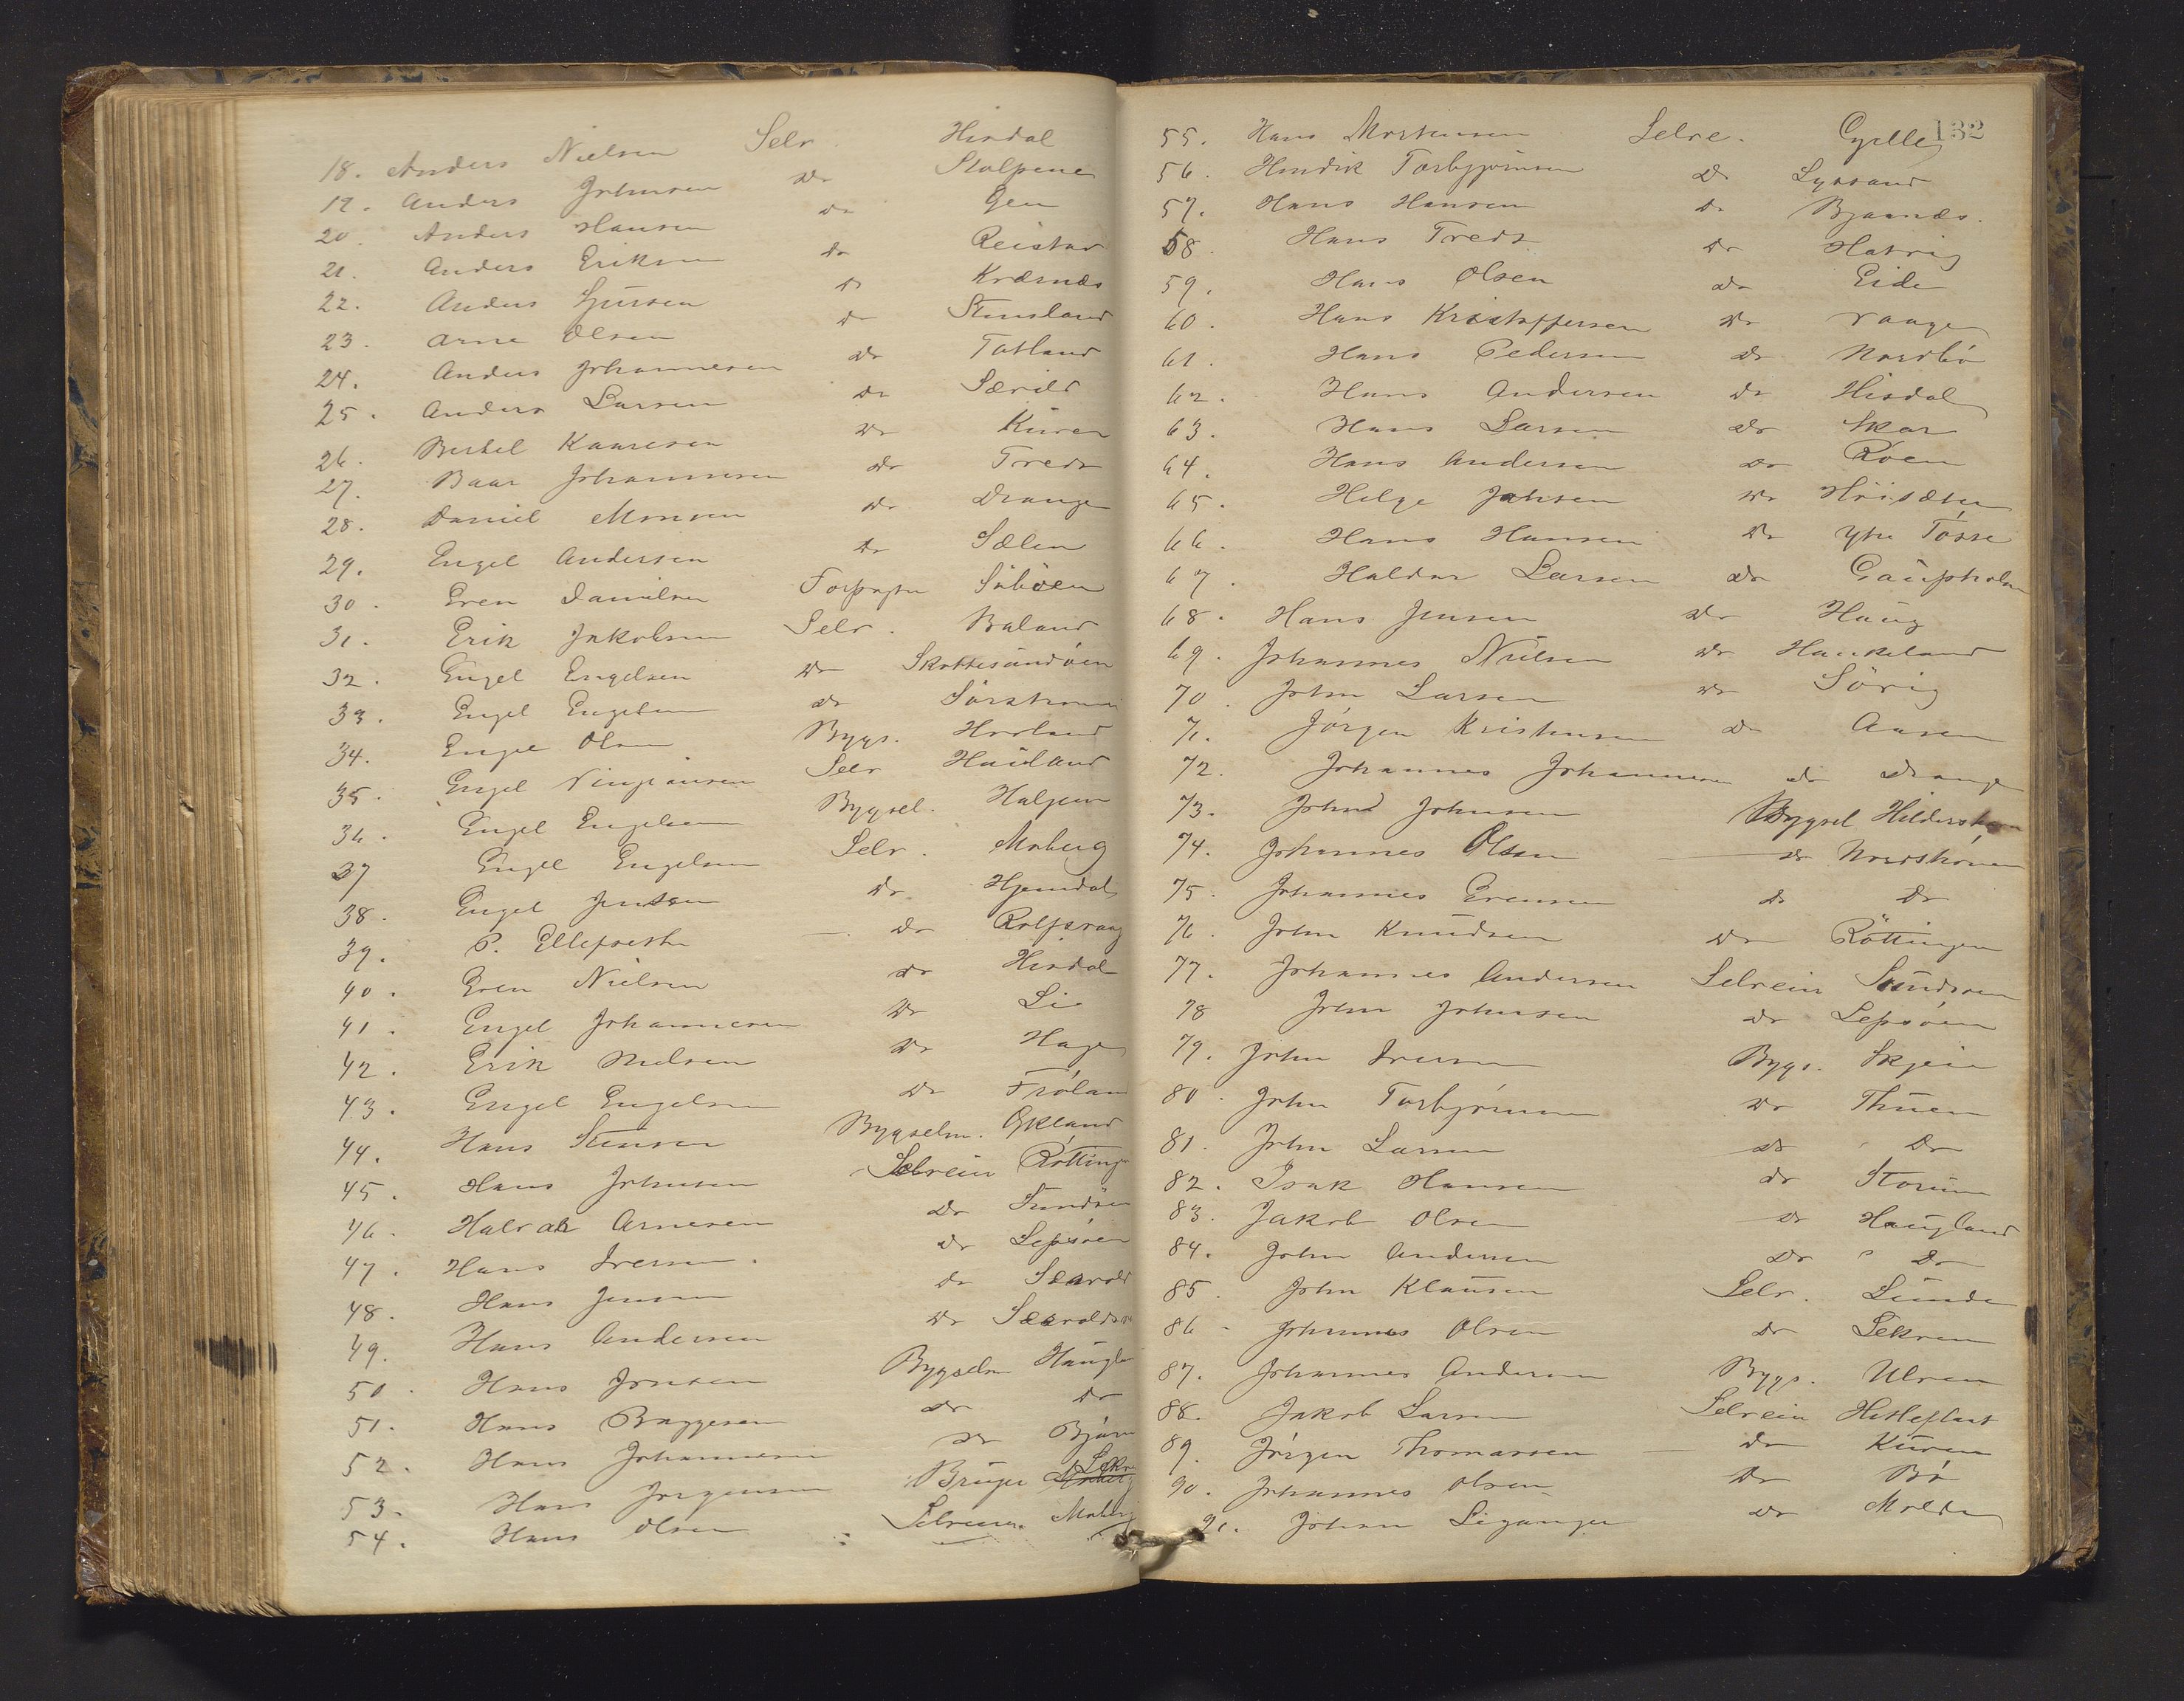 18. Anders Nielsen Selv. Hisdal
19. Anders Johnsen Do Stolpene
20. Anders Hansen Do Gen
21. Anders Eriksen Do Reistad
22. Anders Sjursen Do Kræsnæs
23. Arne Olsen Do Stensland
24. Anders Johannesen Do Tøsland
25. Anders Larsen Do Særild
26. Bertel Kaaresen Do Kuven
27. Baar Johannesen Do Tredt
28. Daniel Monsen Do Drange
29. Engel Andersen Do Sælen
30. Even Danielsen Forpagter Søbøen
31. Erik Jakobsen Selv. Baland
32. Engel Engelsen Do Skottesundøen
33. Engel Engelsen Do Sørstrømmen
34. Engel Olsen Bygs. Hovland
35. Engel Selv Hauland
36. Engel Engelsen Bygsel. Halpem
37 Engel Engelsen Selv. Moberg
38. Engel Jensen Do Hjemdal
39. P. Ellefseth Do Rolfsvaag
40. Even Nielsen Do Hisdal
41. Engel Johannesen Do Li
42. Erik Nielsen Do Hage
43. Engel Engelsen Do Frølan
44. Hans Stensen Bygselm. Økland
45. Hans Johnsen Selveier Røttinge
46. Halvor Arnesen Do Sundøen
47. Hans Iversen. Do Lepsøen
48. Hans Jensen Do Særvold
49. Hans Andersen Do
50. Hans Jonsen Bygselm Haugla
51. Hans Baggesen Do Do
52. Hans Johannesen Do Bjørn
53. Hans Jørgensen Bruger Lekve
54. Hans Olsen Selveier. Moberg
132
55. Hans Mortensen Selve. Gjelle
56. Hendrik Torbjørnsen Do Lyssand
57. Hans Hansen Do Bjaanæs.
58. Hans Tredt Do Hatvig
59. Hans Olsen Do Eide
60. Hans Kristoffersen Do Vaage
61. Hans Pedersen Do Nordbø
62. Hans Andersen Do Hisdal
63. Hans Larsen Do Skar
64. Hans Andersen Do Røen
65. Helge Jansen Do Høisæter
66. Hans Hansen Do Ytre Tøsse
67. Haldor Larsen Do Gaupholm
68. Hans Jensen Do Haug
69. Johannes Nielsen Do Haukeland
70. John Larsen Do Sørvig
71. Jörgen Kristensen Do Aasen
72. Johannes Johannesen do Drange
73. John Johnsen Bygsel
74. Johannes Olsen do Nordstrønen
75. Johannes Evensen do Do
76. John Knudsen Do Røttingen
77. Johannes Andersen Selveier Sundøen
78 John Johnsen do Lepsøen
79. John Iversen Bygs. Skjein
80. John Torbjørnsen Do Thuen
81. John Larsen do Do
82. Isak Hansen do Storum
83. Jakob Olsen Do Haugland
84. John Andersen Do Do
85. John Klausen Selv. Lunde
86. Johannes Olsen Do Lekven
87. Johannes Andersen Bygs. Ulven
88. Jakob Larsen Selveier Hetleflaat
89. Jörgen Thomassen do Kuven
90. Johannes Olsen Do Bø
91. Johan Leganger Do Molde